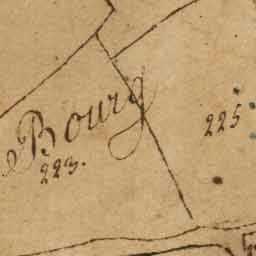 Bourg
223.
225